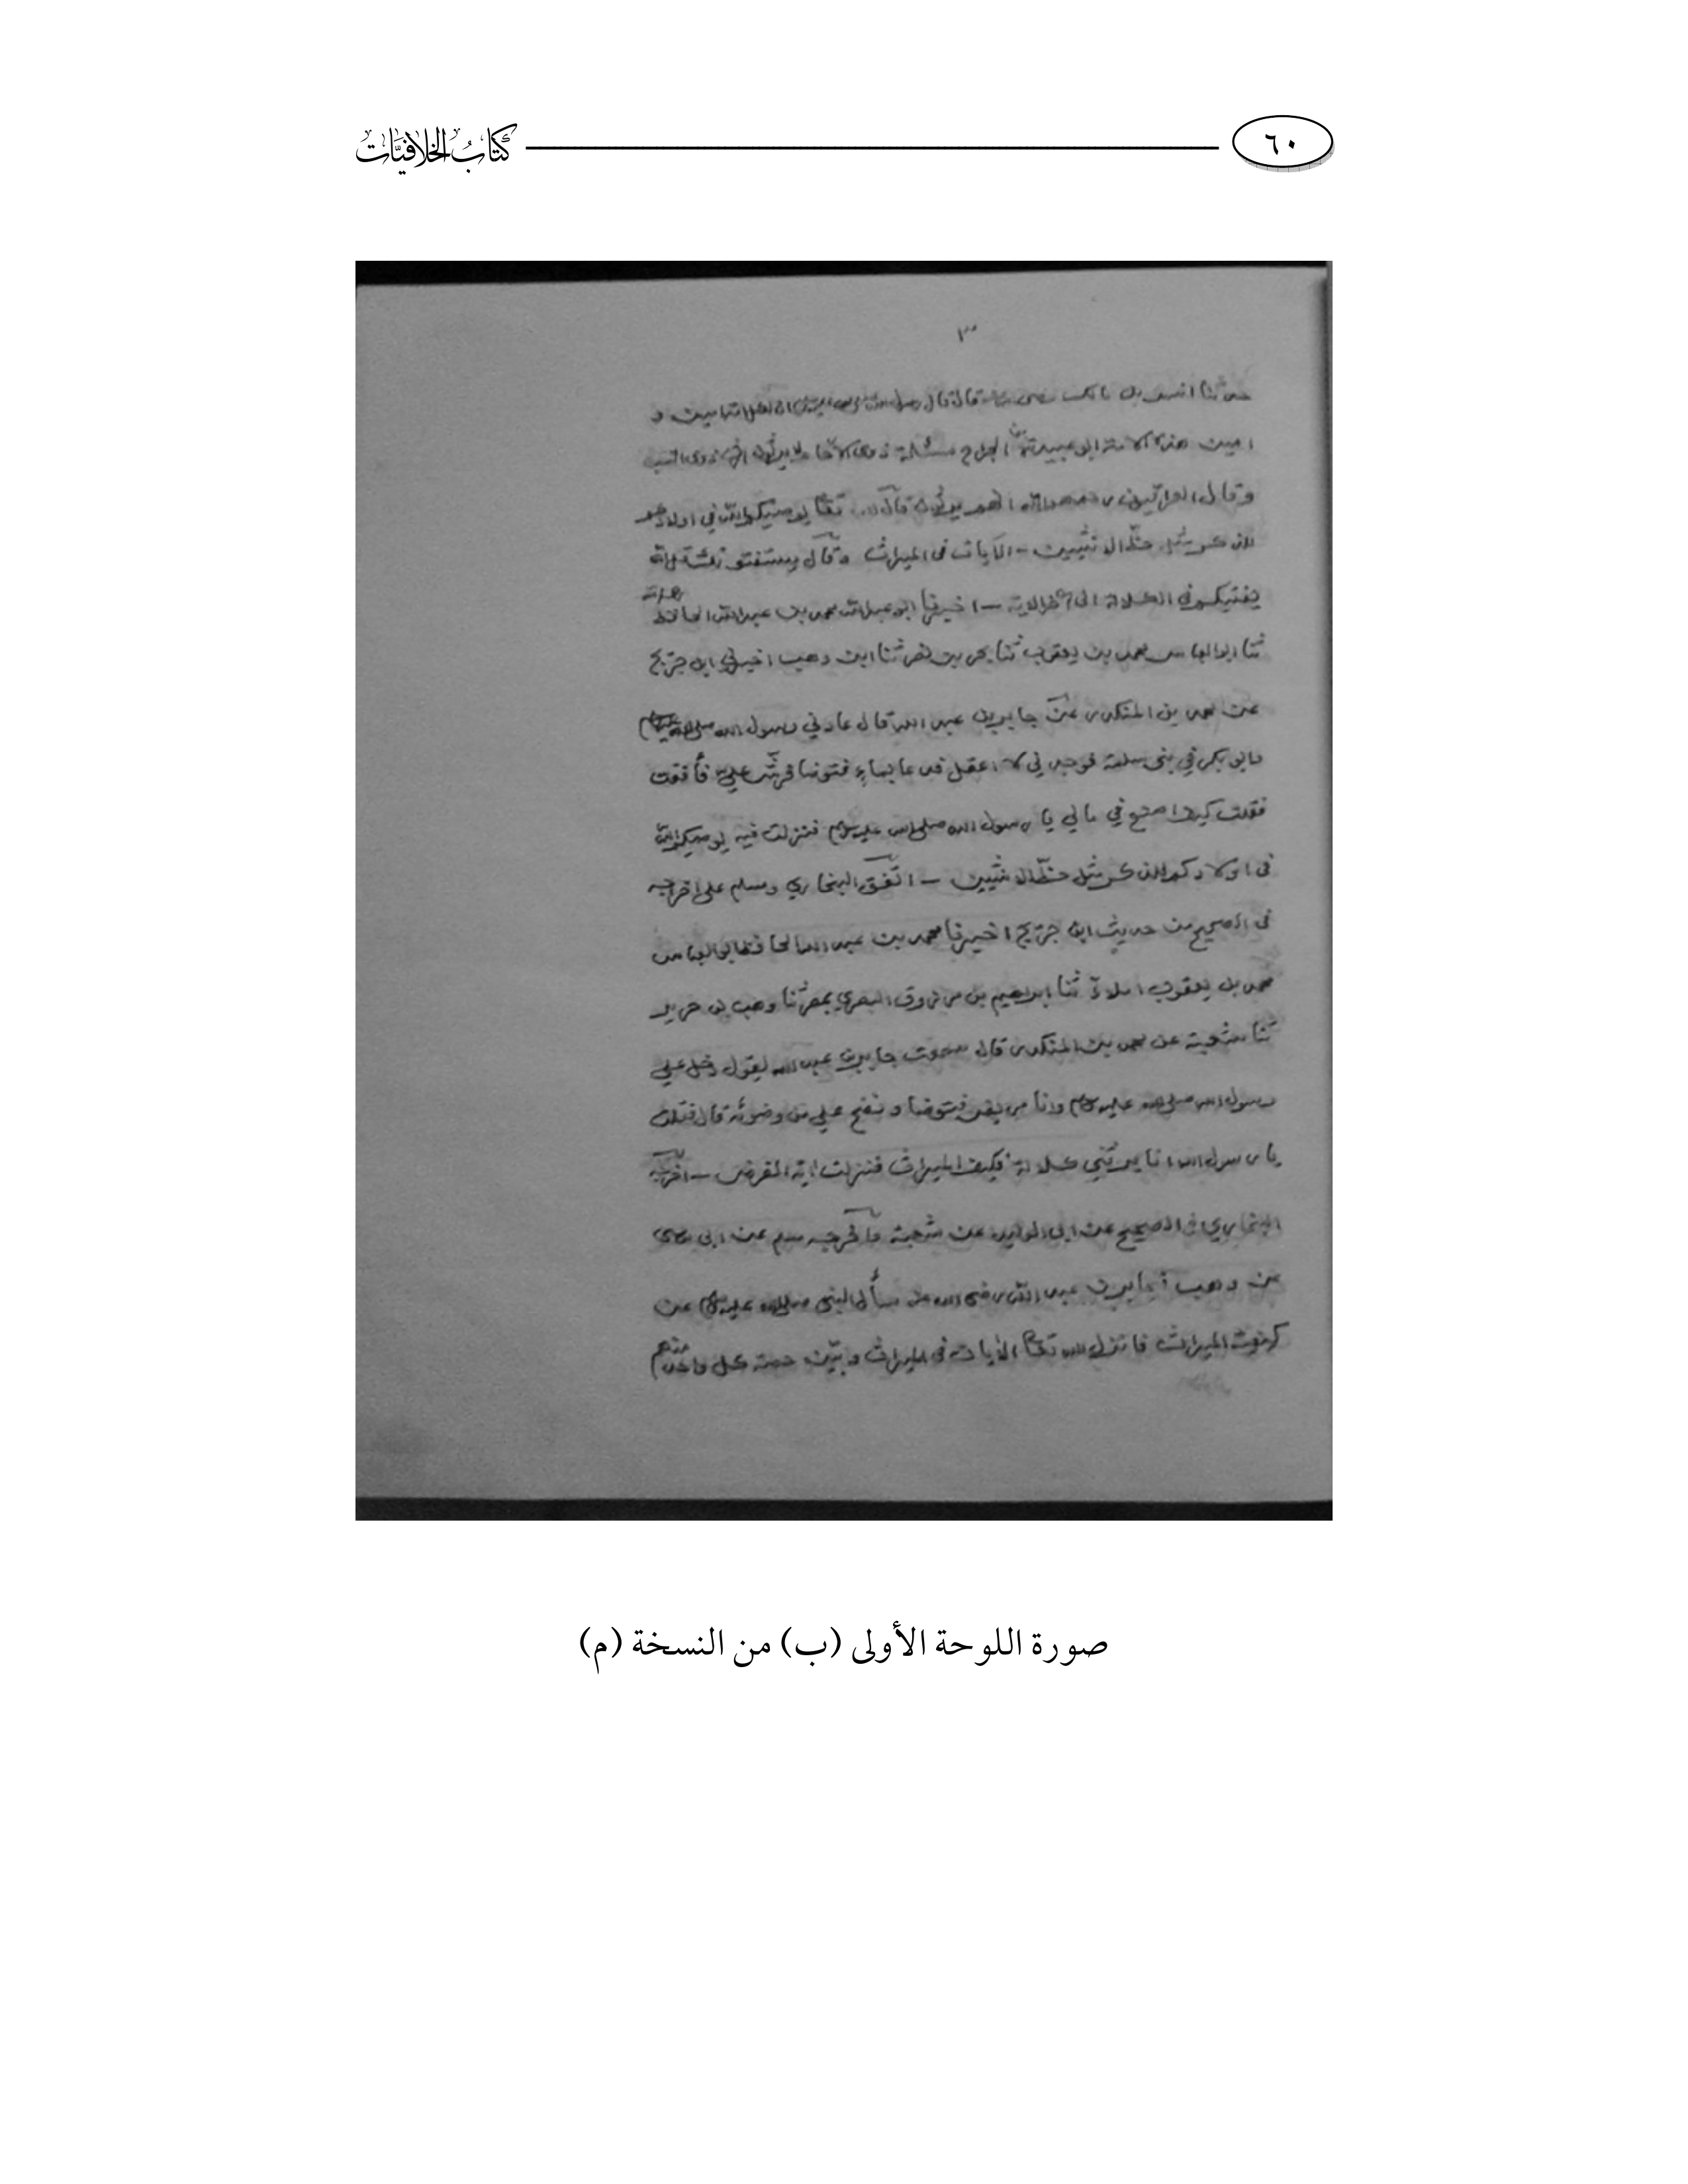 ٦٠
كتاب الخلافيات
٣
حدثنا انس بن مالك قال قال رسول الله
امين هذه الامة ابو عبيدة بن الجراح مسئلة ذوى الارحام لا يرثون
وقال العراقيون رحمهم الله انهم يرثون قال الله تعا يوصيكم الله في اولادكم
للذكر مثل حظ الانثيين - الآيات فى الميراث وقال يستفتونك قل الله
يفتيكم فى الكلالة الى اخر الاية - اخبرنا ابو عبد الله محمد بن عبد الله الحافظ
ثنا ابو العباس محمد بن يعقوب ثنا بحر بن نصر ثنا ابن وهب اخبرني ابن جريج
عن محمد بن المنكدر عن جابر بن عبد الله قال عادني رسول الله صلى الله عليه وسلم
وابو بكر في بنى سلمة فوجدني لا اعقل فدعا بماء فتوضا فرش علي فأفقت
فقلت كيف اصنع في مالي يا رسول الله صلى الله عليه وسلم فنزلت فيه يوصيكم الله
فى اولادكم للذكر مثل حظ الانثيين - اتفق البخاري ومسلم على اخراجه
فى الصحيح من حديث ابن جريج اخبرنا محمد بن عبد الله الحافظ ابو العباس
محمد بن يعقوب املاءً ثنا ابراهيم بن مرزوق البصري بمصر ثنا وهب بن جرير
ثنا شعبة عن محمد بن المنكدر قال سمعت جابر بن عبد الله يقول دخل علي
رسول الله صلى الله عليه وسلم وانا مريض فتوضا ونضح علي من وضوئه قال فقلت
يا رسول الله انما يرثني كلالة فكيف الميراث فنزلت آية الفرض - اخرجه
البخاري فى الصحيح عن ابى الوليد عن شعبة واخرجه مسلم عن ابى موسى
عن وهب فجابر بن عبد الله رضى الله عنه سأل النبى صلى الله عليه وسلم عن
كيفية الميراث فانزل الله تعا الآيات فى الميراث وبيّن حصة كل واحد منهم
صورة اللوحة الأولى (ب) من النسخة (م)